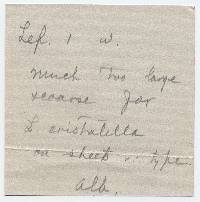 Lef. 1 w.
much too large
& coarse for
L cristatella
on sheet w. type
Alb.